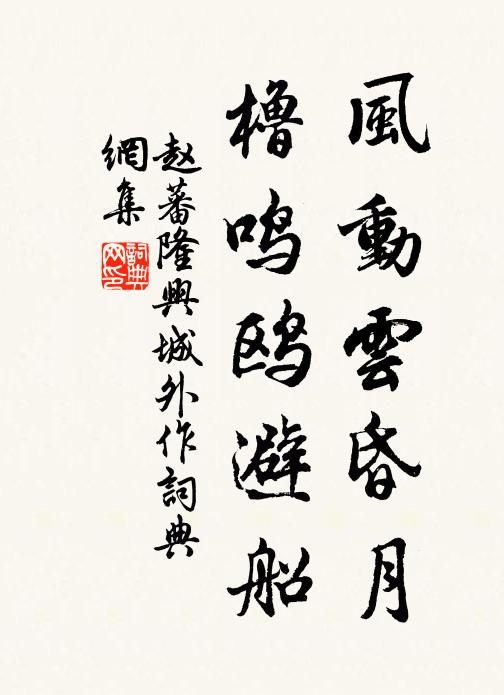 風動雲昏月
櫓鸣鸥避船
赵蕃隆興城外作詞典
網集
詞典網印